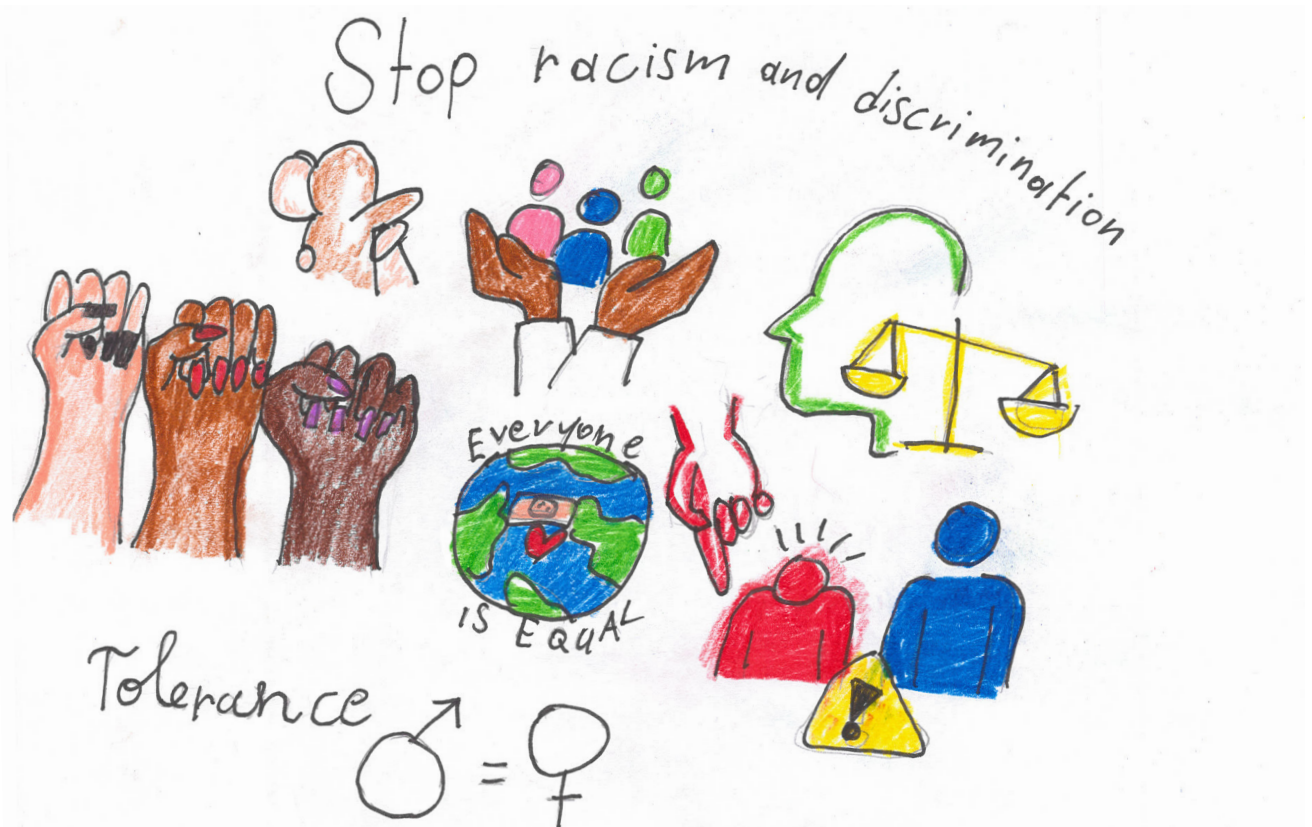 Stop racism and discrimination
Everyone
IS EQUAL
Tolerance
=